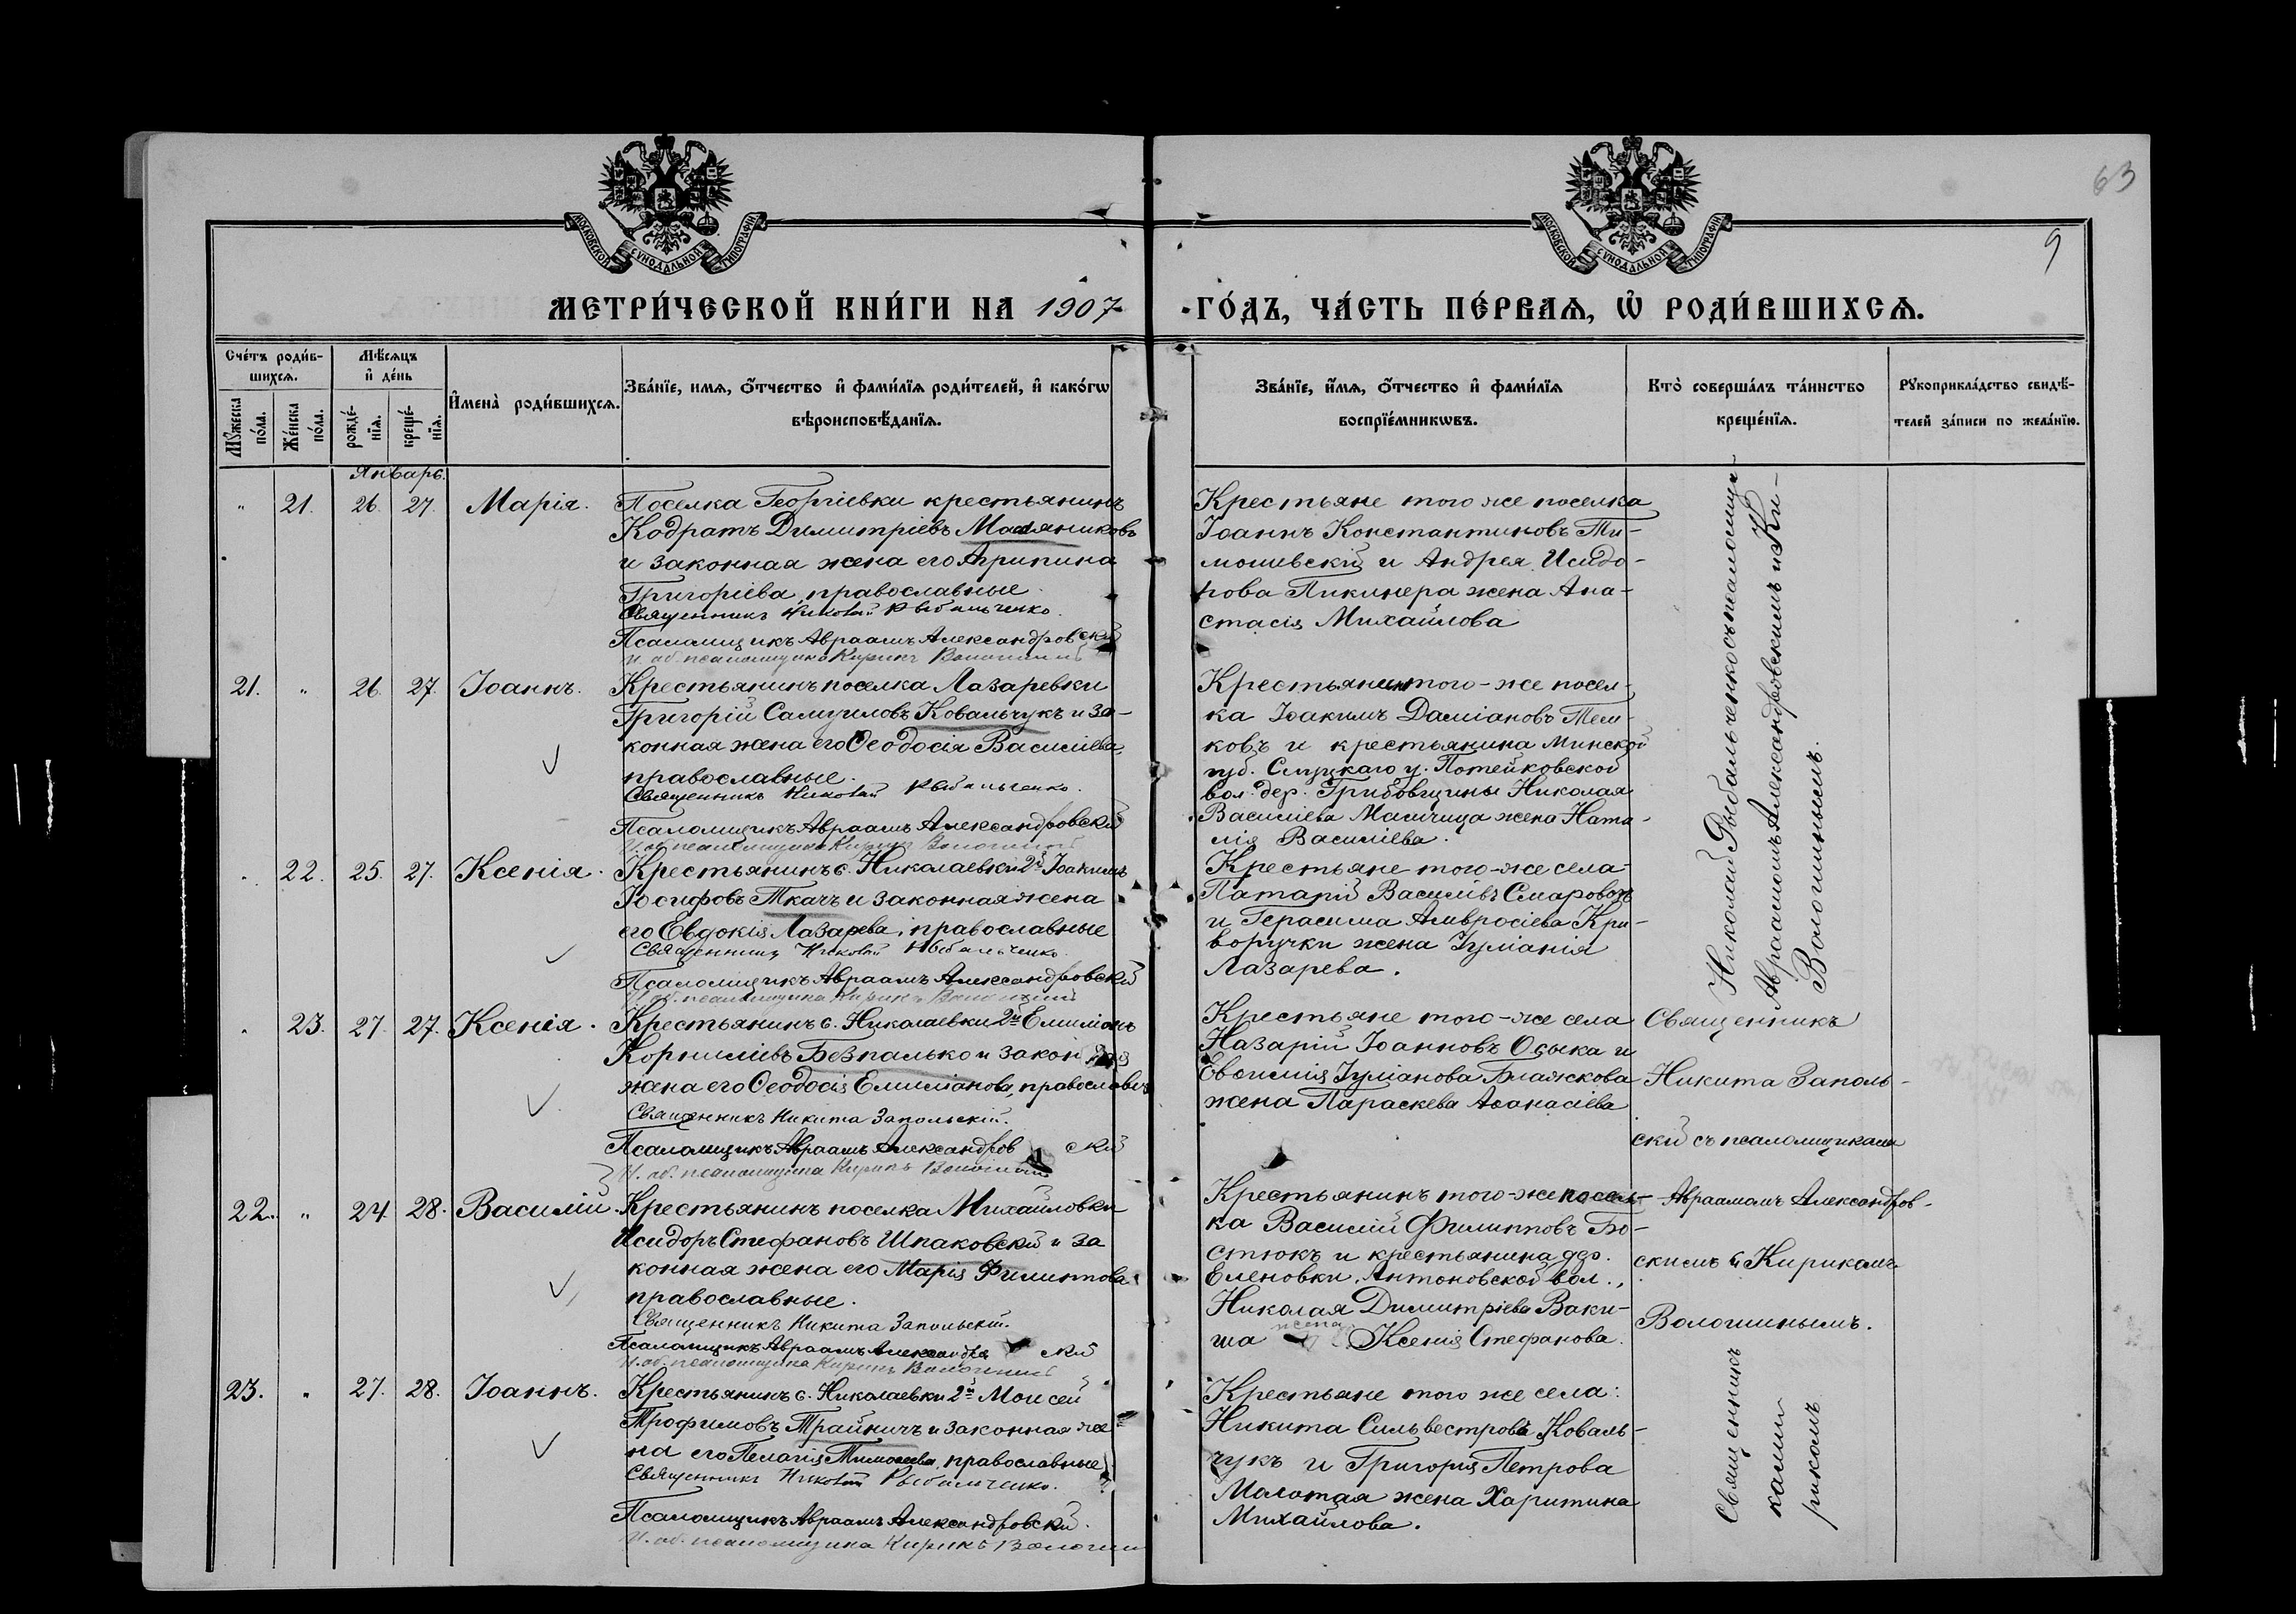 63
9
МОСКОВСКОЙ СѴНОДАЛЬНОЙ ТИПОГРАФІИ
МОСКОВСКОЙ СѴНОДАЛЬНОЙ ТИПОГРАФІИ
МЕТРИ́ЧЕСКОЙ КНИ́ГИ НА 1907 ГО́ДЪ, ЧА́СТЬ ПЕ́РВАѦ, Ѡ҆ РОДИ́ВШИХСѦ.
Сче́тъ роди́в-
шихсѧ.
Мꙋ́жеска по́ла.
Же́нска по́ла.
Мѣ́сѧцъ
и҆ де́нь
рожде́-
нїѧ.
креще́-
нїѧ.
И҆мена̀ роди́вшихсѧ.
Зва́нїе, имѧ, ѻ҆́тчество и҆ фами́лїѧ роди́телей, и҆ како́гѡ
вѣроисповѣ́данїѧ.
Зва́нїе, и҆́мѧ, ѻ҆́тчество и҆ фами́лїѧ
воспрїе́мникѡвъ.
Кто̀ соверша́лъ та́инство
креще́нїѧ.
Рꙋкоприкла́дство свидѣ́-
телей за́писи по жела́нїю.
Январь.
" 21. 26. 27. Марія.
Поселка Георгіевки крестьянинъ
Кодратъ Димитріевъ Масляниковъ
и законная жена его Агрипина
Григоріева, православные.
Священникъ Николай Рыбальченко.
Псаломщикъ Авраамъ Александровскій
И. об. псаломщика Кирикъ Волошинъ
Крестьяне того же поселка
Іоаннъ Константиновъ Ти-
мошевскій и Андрея Исидо-
рова Пикинера жена Ана-
стасія Михайлова
21. " 26. 27. Іоаннъ.
Крестьянинъ поселка Лазаревки
Григорій Самуиловъ Ковальчукъ и за-
конная жена его Ѳеодосія Василіева,
православные.
Священникъ Николай Рыбальченко.
Псаломщикъ Авраамъ Александровскій
И. об. псаломщика Кирикъ Волошинъ
Крестьянинъ того-же посел-
ка Іоакимъ Даміановъ
ковъ и крестьянина Минской
губ. Слуцкаго у. Потейковской
вол. дер. Грибовщины Николая
Василіева жена Ната-
лія Василіева.
" 22. 25. 27. Ксенія.
Крестьянинъ с. Николаевки 2й Іоакимъ
Іосифовъ Ткачъ и законная жена
его Евдокія Лазарева, православные
Священникъ Николай Рыбальченко.
Псаломщикъ Авраамъ Александровскій
И. об. псаломщика Кирикъ Волошинъ
Крестьяне того-же села
Василіевъ
и Герасима Амвросіева Кри-
воручки жена Іуліанія
Лазарева.
Николай Рыбальченко съ псаломщи-
Авраамомъ Александровскимъ и Ки-
Волошинымъ.
" 23. 27. 27. Ксенія.
Крестьянинъ с. Николаевки 2й Емиліанъ
Корниліевъ Безпалько и законная
жена его Ѳеодосія Емиліанова, православные
Священникъ Никита Запольскій.
Псаломщикъ Авраамъ Александровскій
И. об. псаломщика Кирикъ Волошинъ
Крестьяне того-же села
Назарій Іоанновъ Осыка и
Евѳимія Іуліанова Блажкова
жена Параскева Аѳанасіева
Священникъ
Никита Заполь-
скій съ псаломщиками
Авраамомъ Александров-
скимъ и Кирикомъ
Волошинымъ.
22. " 24. 28. Василій.
Крестьянинъ поселка Михайловки
Исидоръ Стефановъ Шпаковскій и за
конная жена его Марія Филиппова
православные.
Священникъ Никита Запольскій.
Псаломщикъ Авраамъ Александровскій
И. об. псаломщика Кирикъ Волошинъ
Крестьянинъ того-же посел-
ка Василій Филипповъ Бо-
стюкъ и крестьянина дер.
Еленовки, Антоновской вол.,
Николая Димитріева Ваки-
ша жена Ксенія Стефанова.
23. " 27. 28. Іоаннъ.
Крестьянинъ с. Николаевки 2й Моисей
Трофимовъ Трайничъ и законная же
на его Пелагія Тимоѳеева, православные
Священникъ Николай Рыбальченко.
Псаломщикъ Авраамъ Александровскій.
И. об. псаломщика Кирикъ Волошин
Крестьяне того же села:
Никита Сильвестровъ Коваль-
чукъ и Григорія Петрова
Молотая жена Харитина
Михайлова.
Священникъ
ками
рикомъ